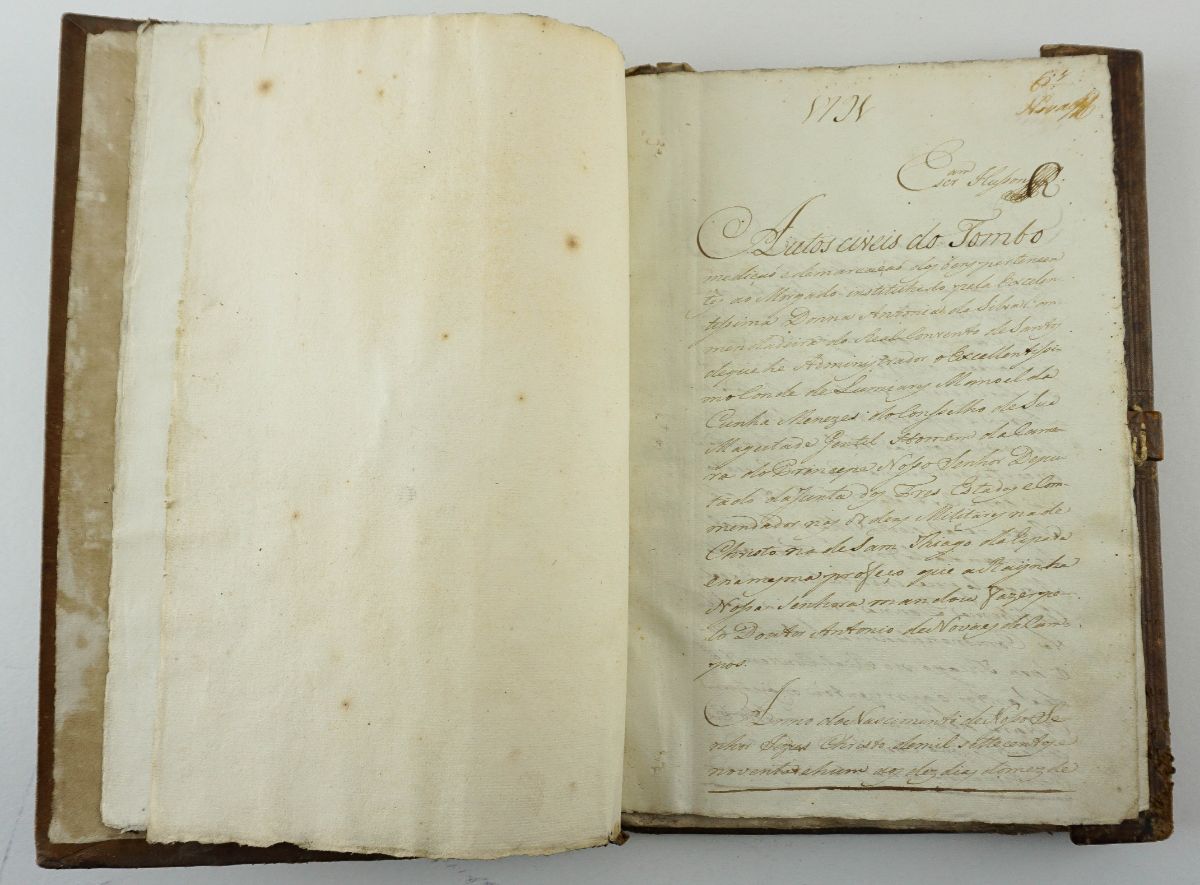 1791
Novaes
Autos civeis do Tombo
medição e demarcação dos bens pertencen
tes ao Morgado instituhido pela Excelen
tissima Donna Antonia da Silva Com
mendadeira do Real Convento de Santos
de que he Administrador o Excellentissi
mo Conde de Lumiares Manoel da
Cunha Menezes do Conselho de Sua
Magestade Gentil Homem da Cama
ra do Princepe Nosso Senhor Depu
tado da Junta dos Tres Estados e Com
mendador nas Ordeas Militares na de
Christo na de Sam Thiago da Espada
e na mesma profeço que a Raynha
Nossa Senhora mandou fazer pe
lo Doutor Antonio de Novaes de Cam
pos.
Anno do Nascimento de Nosso Se
nhor Jezus Christo de mil sette centos e
noventa e hum aos dez dias do mez de